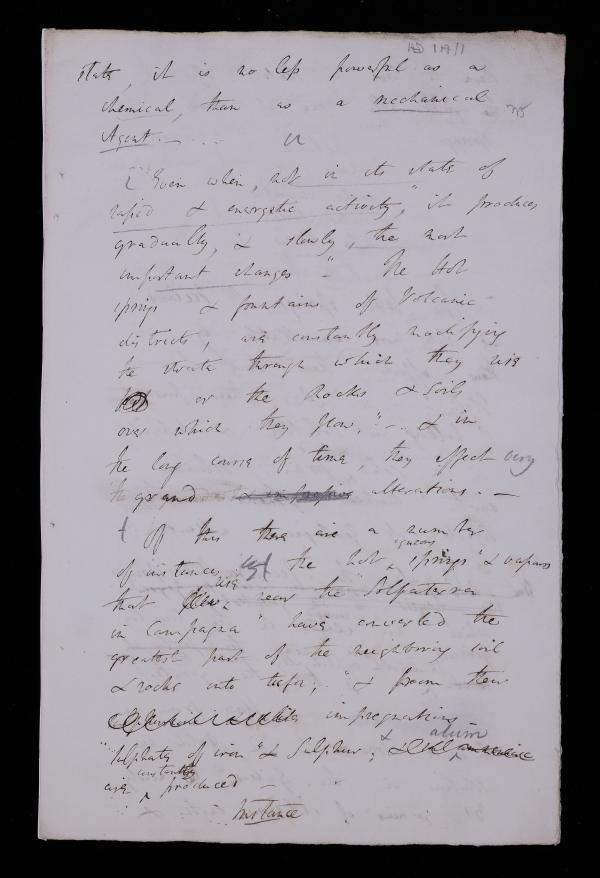 HD 19/1
state, it is no less powerful as a
chemical, than as a mechanical
Agent. — . . .
Even when, not in its state of
rapid & energetic activity, it produces
gradually, & slowly, the most
important changes — The Hot
springs & fountains of Volcanic
districts, are constantly modifying
the strata through which they rise
or the Rocks & Soils
over which they flow, " — . & in
the long course of time, they effect very
grand & alterations. —
Of this there are a number
of instances, the hot springs & vapours
that rise, near the Solfaterra
in Campagna " have converted the
greatest part of the neighboring soil
& rocks into tufa, " & from their
impregnations
"Sulphates of iron" & Sulphur, & alum
are constantly produced —
Instance